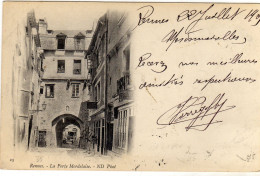 Rennes 22 Juillet 190
Mesdemoiselles,
Recevez mes meilleures
amitiés respectueuses
Rennes. - La Porte Mordelaise. - ND Phot